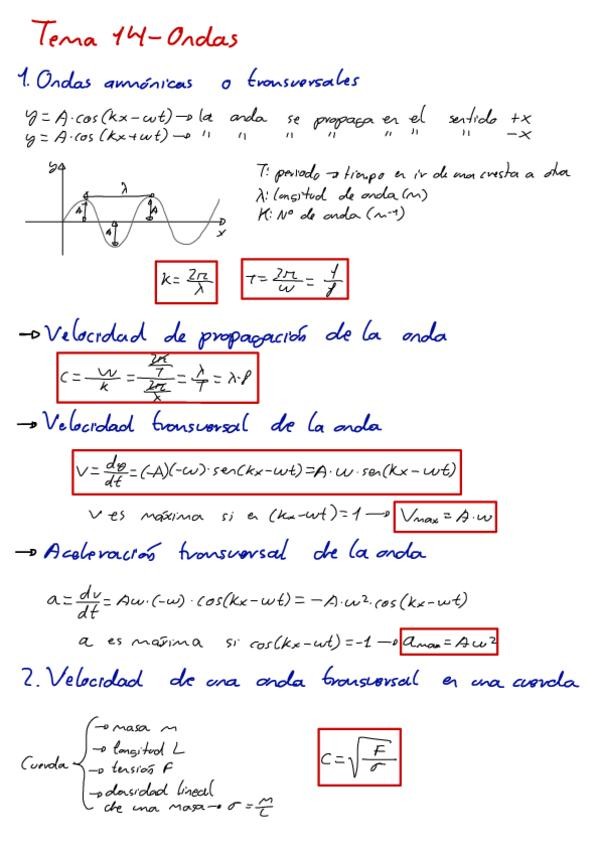 Tema 14-Ondas
1. Ondas armónicas o transversales
y = A·cos(kx-wt) → la onda se propaga en el sentido +x
y = A·cos(kx+wt) → " " " " " " " -x
y λ A A A x
T: periodo → tiempo en ir de una cresta a otra
λ: longitud de onda (m)
K: Nº de onda (m⁻¹)
k = 2π/λ T = 2π/w = 1/f
→ Velocidad de propagación de la onda
c = w/k = (2π/T)/(2π/λ) = λ/T = λ·f
→ Velocidad transversal de la onda
v = dy/dt = (-A)(-w)·sen(kx-wt) = A·w·sen(kx-wt)
v es máxima si en (kx-wt)=1 → Vmax = A·w
→ Aceleración transversal de la onda
a = dv/dt = Aw·(-w)·cos(kx-wt) = -A·w²·cos(kx-wt)
a es máxima si cos(kx-wt)=-1 → amax = Aw²
2. Velocidad de una onda transversal en una cuerda
Cuerda
→ masa m
→ longitud L
→ tensión F
→ densidad lineal
de una masa → σ = m/L
c = √(F/σ)